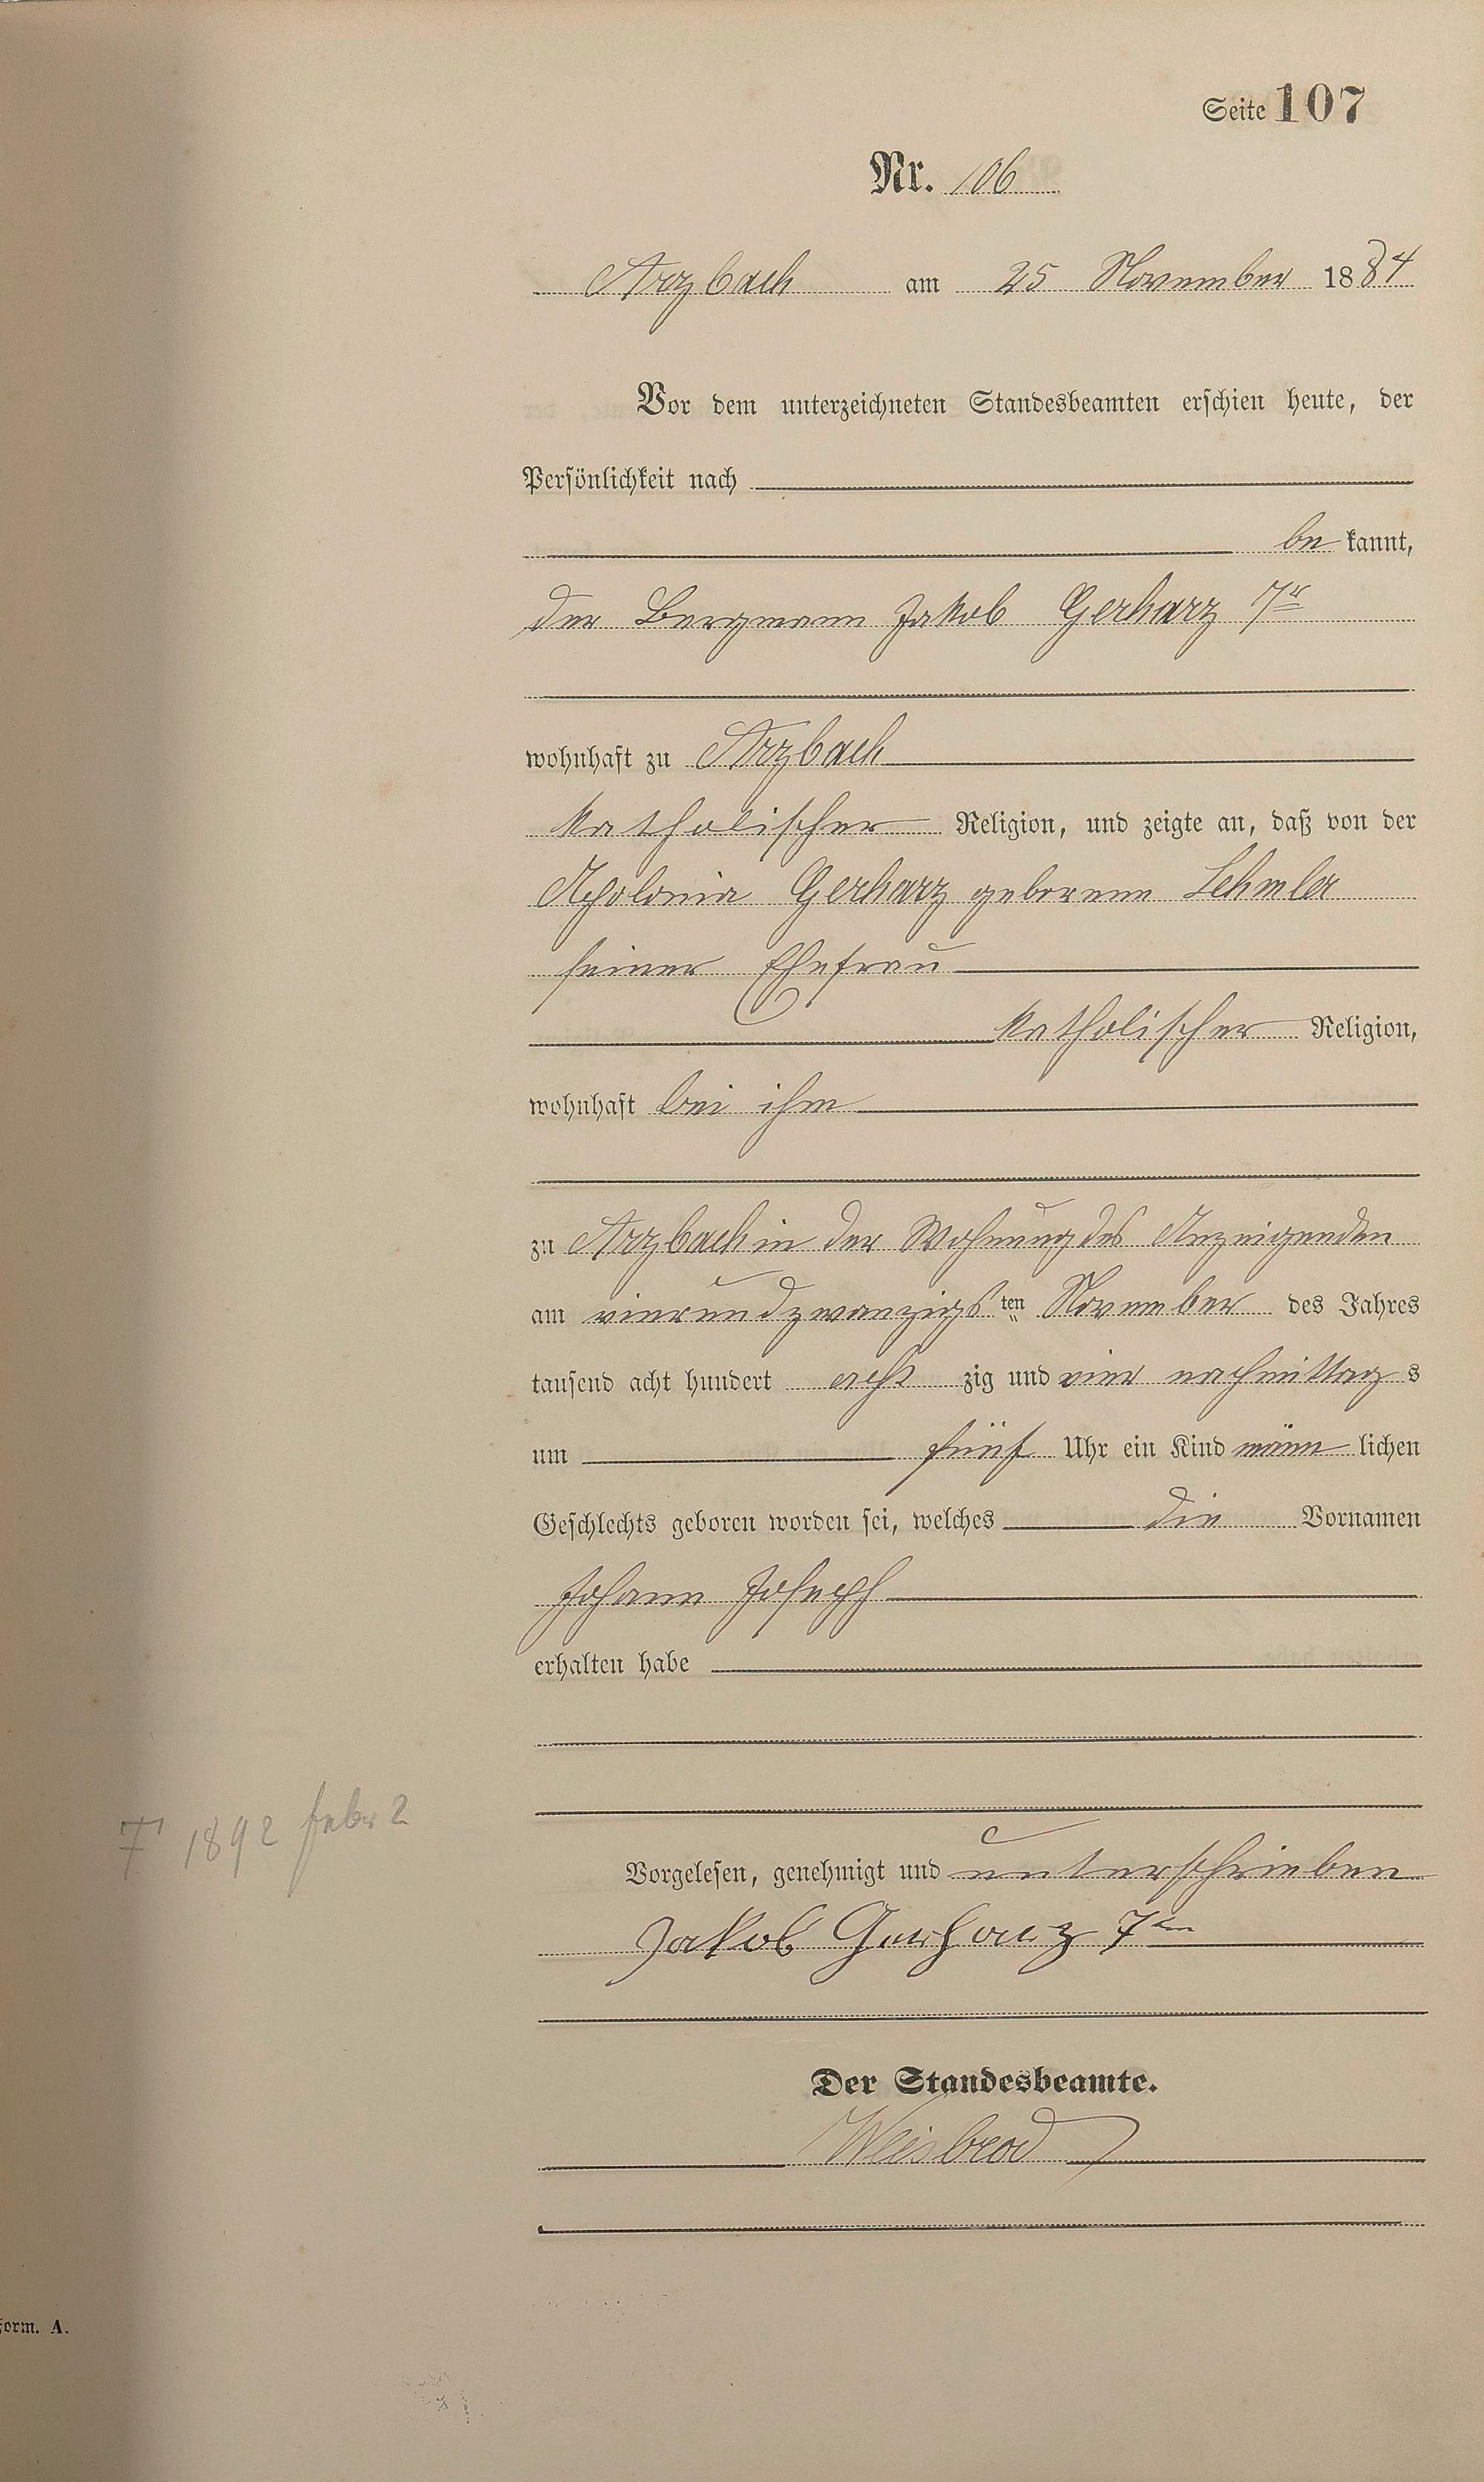 Seite 107
Nr. 106
Arzbach am 25 November 1884
Vor dem unterzeichneten Standesbeamten erschien heute, der
Persönlichkeit nach
be kannt,
der Bergmann Jakob Gerharz 7r
wohnhaft zu Arzbach
katholischer Religion, und zeigte an, daß von der
Apolonia Gerharz geborene Lehmler
seiner Ehefrau
katholischer Religion,
wohnhaft bei ihm
zu Arzbach in der Wohnung des Anzeigenden
am vierundzwanzigsten November des Jahres
tausend acht hundert acht zig und vier nachmittag s
um fünf Uhr ein Kind männ lichen
Geschlechts geboren worden sei, welches die Vornamen
Johann Joseph
erhalten habe
† 1892 Febr 2
Vorgelesen, genehmigt und unterschrieben
Jakob Gerharz 7ter
Der Standesbeamte.
Weisbrod
Form. A.